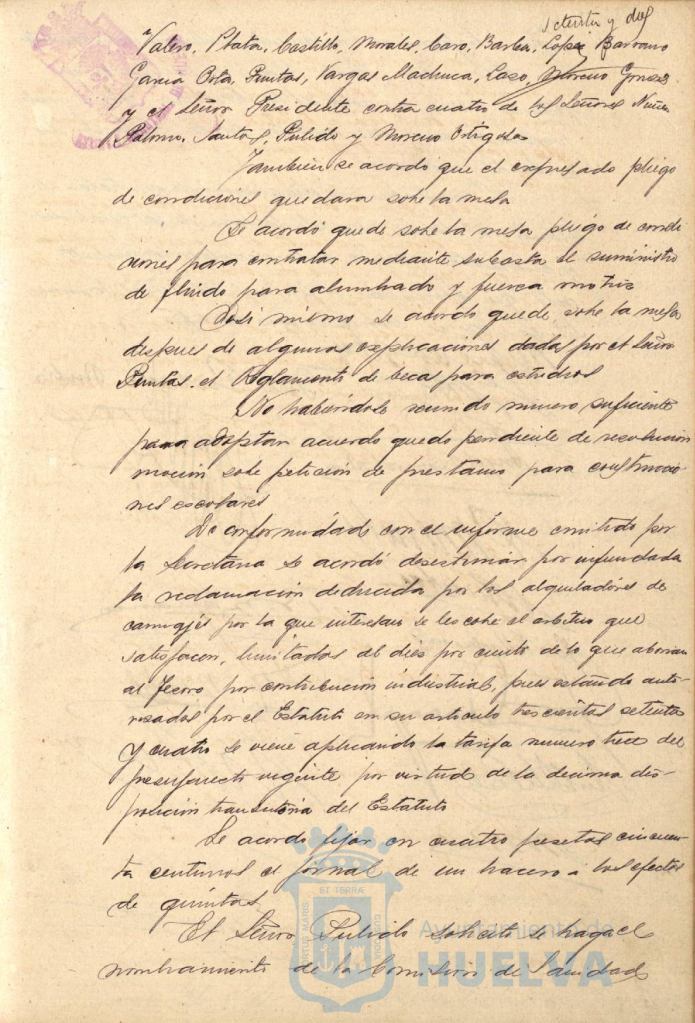 setenta y dos
Valero, Plata, Castillo, Morales, Caro, Barba, Lopez Barrano
Garcia Orta, Puntas, Vargas Machuca, Laso, Moreno Gomez
y el Señor Presidente contra cuatro de los Señores Nuñez
Palomo, Santos, Pulido y Moreno Ortigosa
Tambien se acordo que el expresado pliego
de condiciones quedara sobre la mesa
Se acordó quede sobre la mesa pliego de condi-
ciones para contratar mediante subasta el suministro
de fluido para alumbrado y fuerza motriz
Asi mismo se acordo quede sobre la mesa
despues de algunas explicaciones dadas por el Señor
Puntas, el Reglamento de beca para estudios
No habiendose reunido numero suficiente
para adoptar acuerdo quedo pendiente de resolucion
mocion sobre peticion de prestamo para construccio-
nes escolares
De conformidad con el informe emitido por
la Secretaria se acordó desestimar por infundada
la reclamacion deducida por los alquiladores de
carruajes por la que interesan se les cobre el arbitrio que
satisfacen, limitados al diez por ciento de lo que abonan
al Tesoro por contribucion industrial, pues estando auto-
rizados por el Estatuto en su articulo trescientos setenta
y cuatro se viene aplicando la tarifa numero trece del
presupuesto vigente por virtud de la decima dis-
posicion transitoria del Estatuto
Se acordo fijar en cuatro pesetas cincuen-
ta centimos el jornal de un bracero a los efectos
de quintas
El Señor Pulido solicita se haga el
nombramiento de la Comision de Sanidad
PORTUS MARIS ET TERRÆ CUSTODIA
Ayuntamiento de
HUELVA